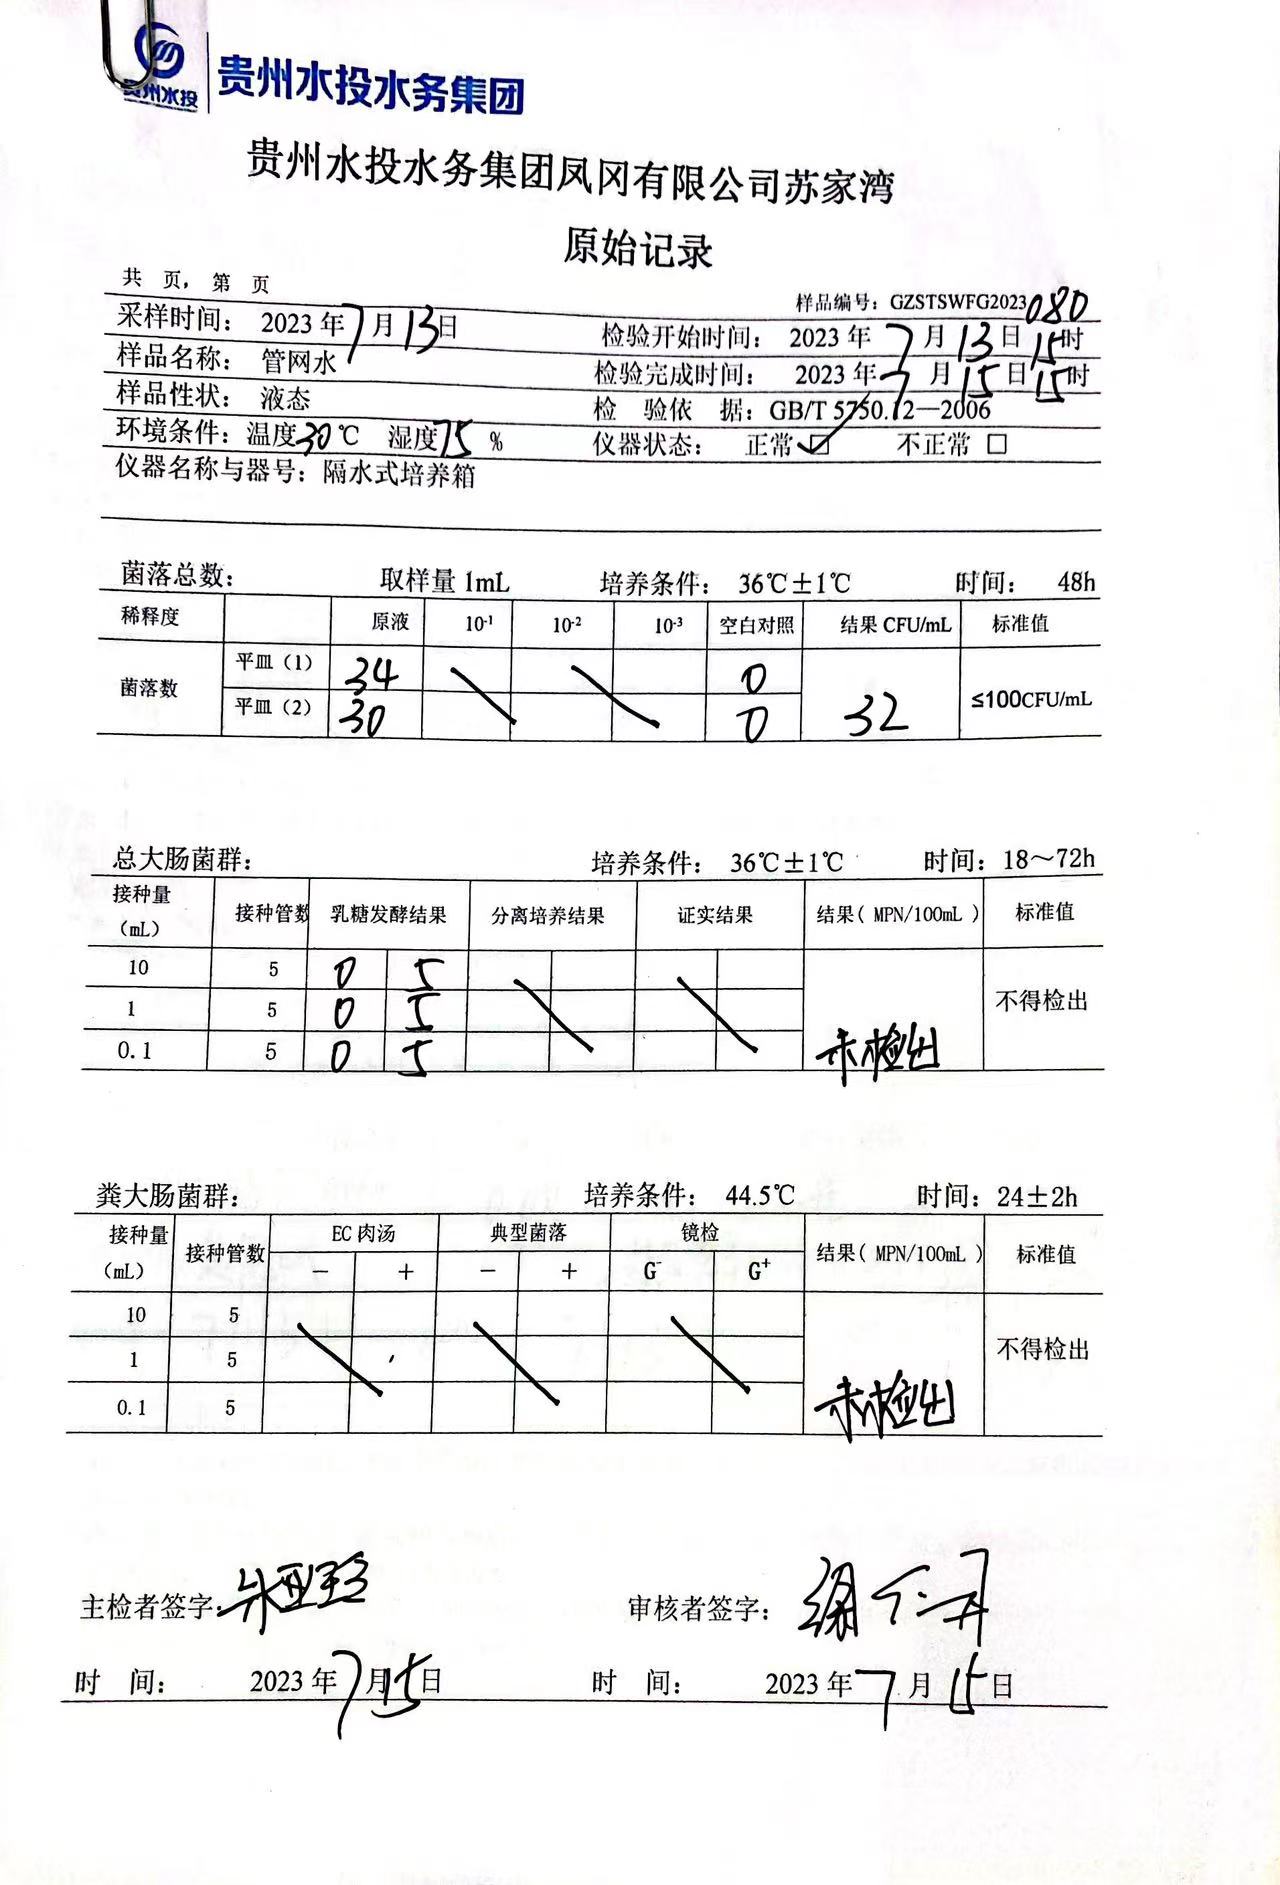 贵州水投 贵州水投水务集团
贵州水投水务集团凤冈有限公司苏家湾
原始记录
共 页，第 页
样品编号：GZSTSWFG2023080
采样时间：2023年7月13日 检验开始时间：2023年7月13日15时
样品名称：管网水 检验完成时间：2023年7月15日15时
样品性状：液态 检 验依 据：GB/T 5750.12—2006
环境条件：温度30℃ 湿度75% 仪器状态：正常☑ 不正常□
仪器名称与器号：隔水式培养箱
菌落总数： 取样量1mL 培养条件：36℃±1℃ 时间：48h
稀释度 原液 10-1 10-2 10-3 空白对照 结果CFU/mL 标准值
菌落数 平皿（1） 34 0 32 ≤100CFU/mL
平皿（2） 30 0
总大肠菌群： 培养条件：36℃±1℃ 时间：18～72h
接种量（mL） 接种管数 乳糖发酵结果 分离培养结果 证实结果 结果（MPN/100mL） 标准值
10 5 0 5 未检出 不得检出
1 5 0 5
0.1 5 0 5
粪大肠菌群： 培养条件：44.5℃ 时间：24±2h
接种量（mL） 接种管数 EC肉汤 典型菌落 镜检 结果（MPN/100mL） 标准值
− + − + G- G+
10 5 未检出 不得检出
1 5
0.1 5
主检者签字： 审核者签字：
时 间：2023年7月15日 时 间：2023年7月15日